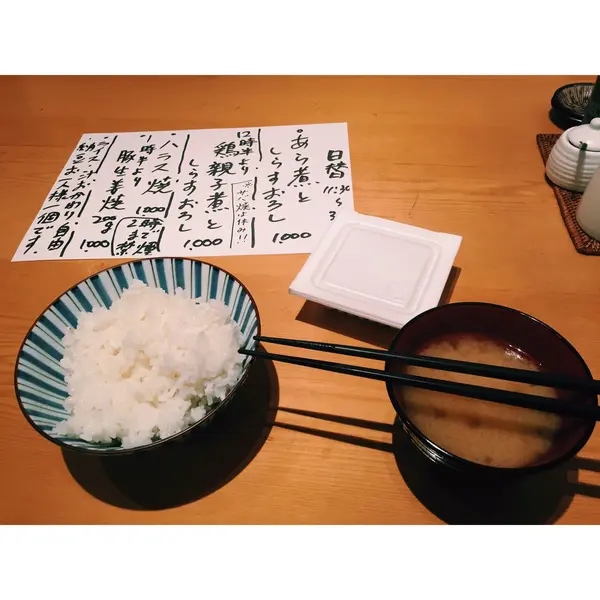 日替
11:30
〜
3
・あら煮と
しらすおろし
1,000
12時半より
鶏親子煮と
しらすおろし
1,000
※サバ焼は休み!!
・ハラス焼
1,000
・1時半より
豚生姜焼
200g
1,000
2時まで禁煙
・ライス・汁おかわり自由
納豆お一人様一個です。